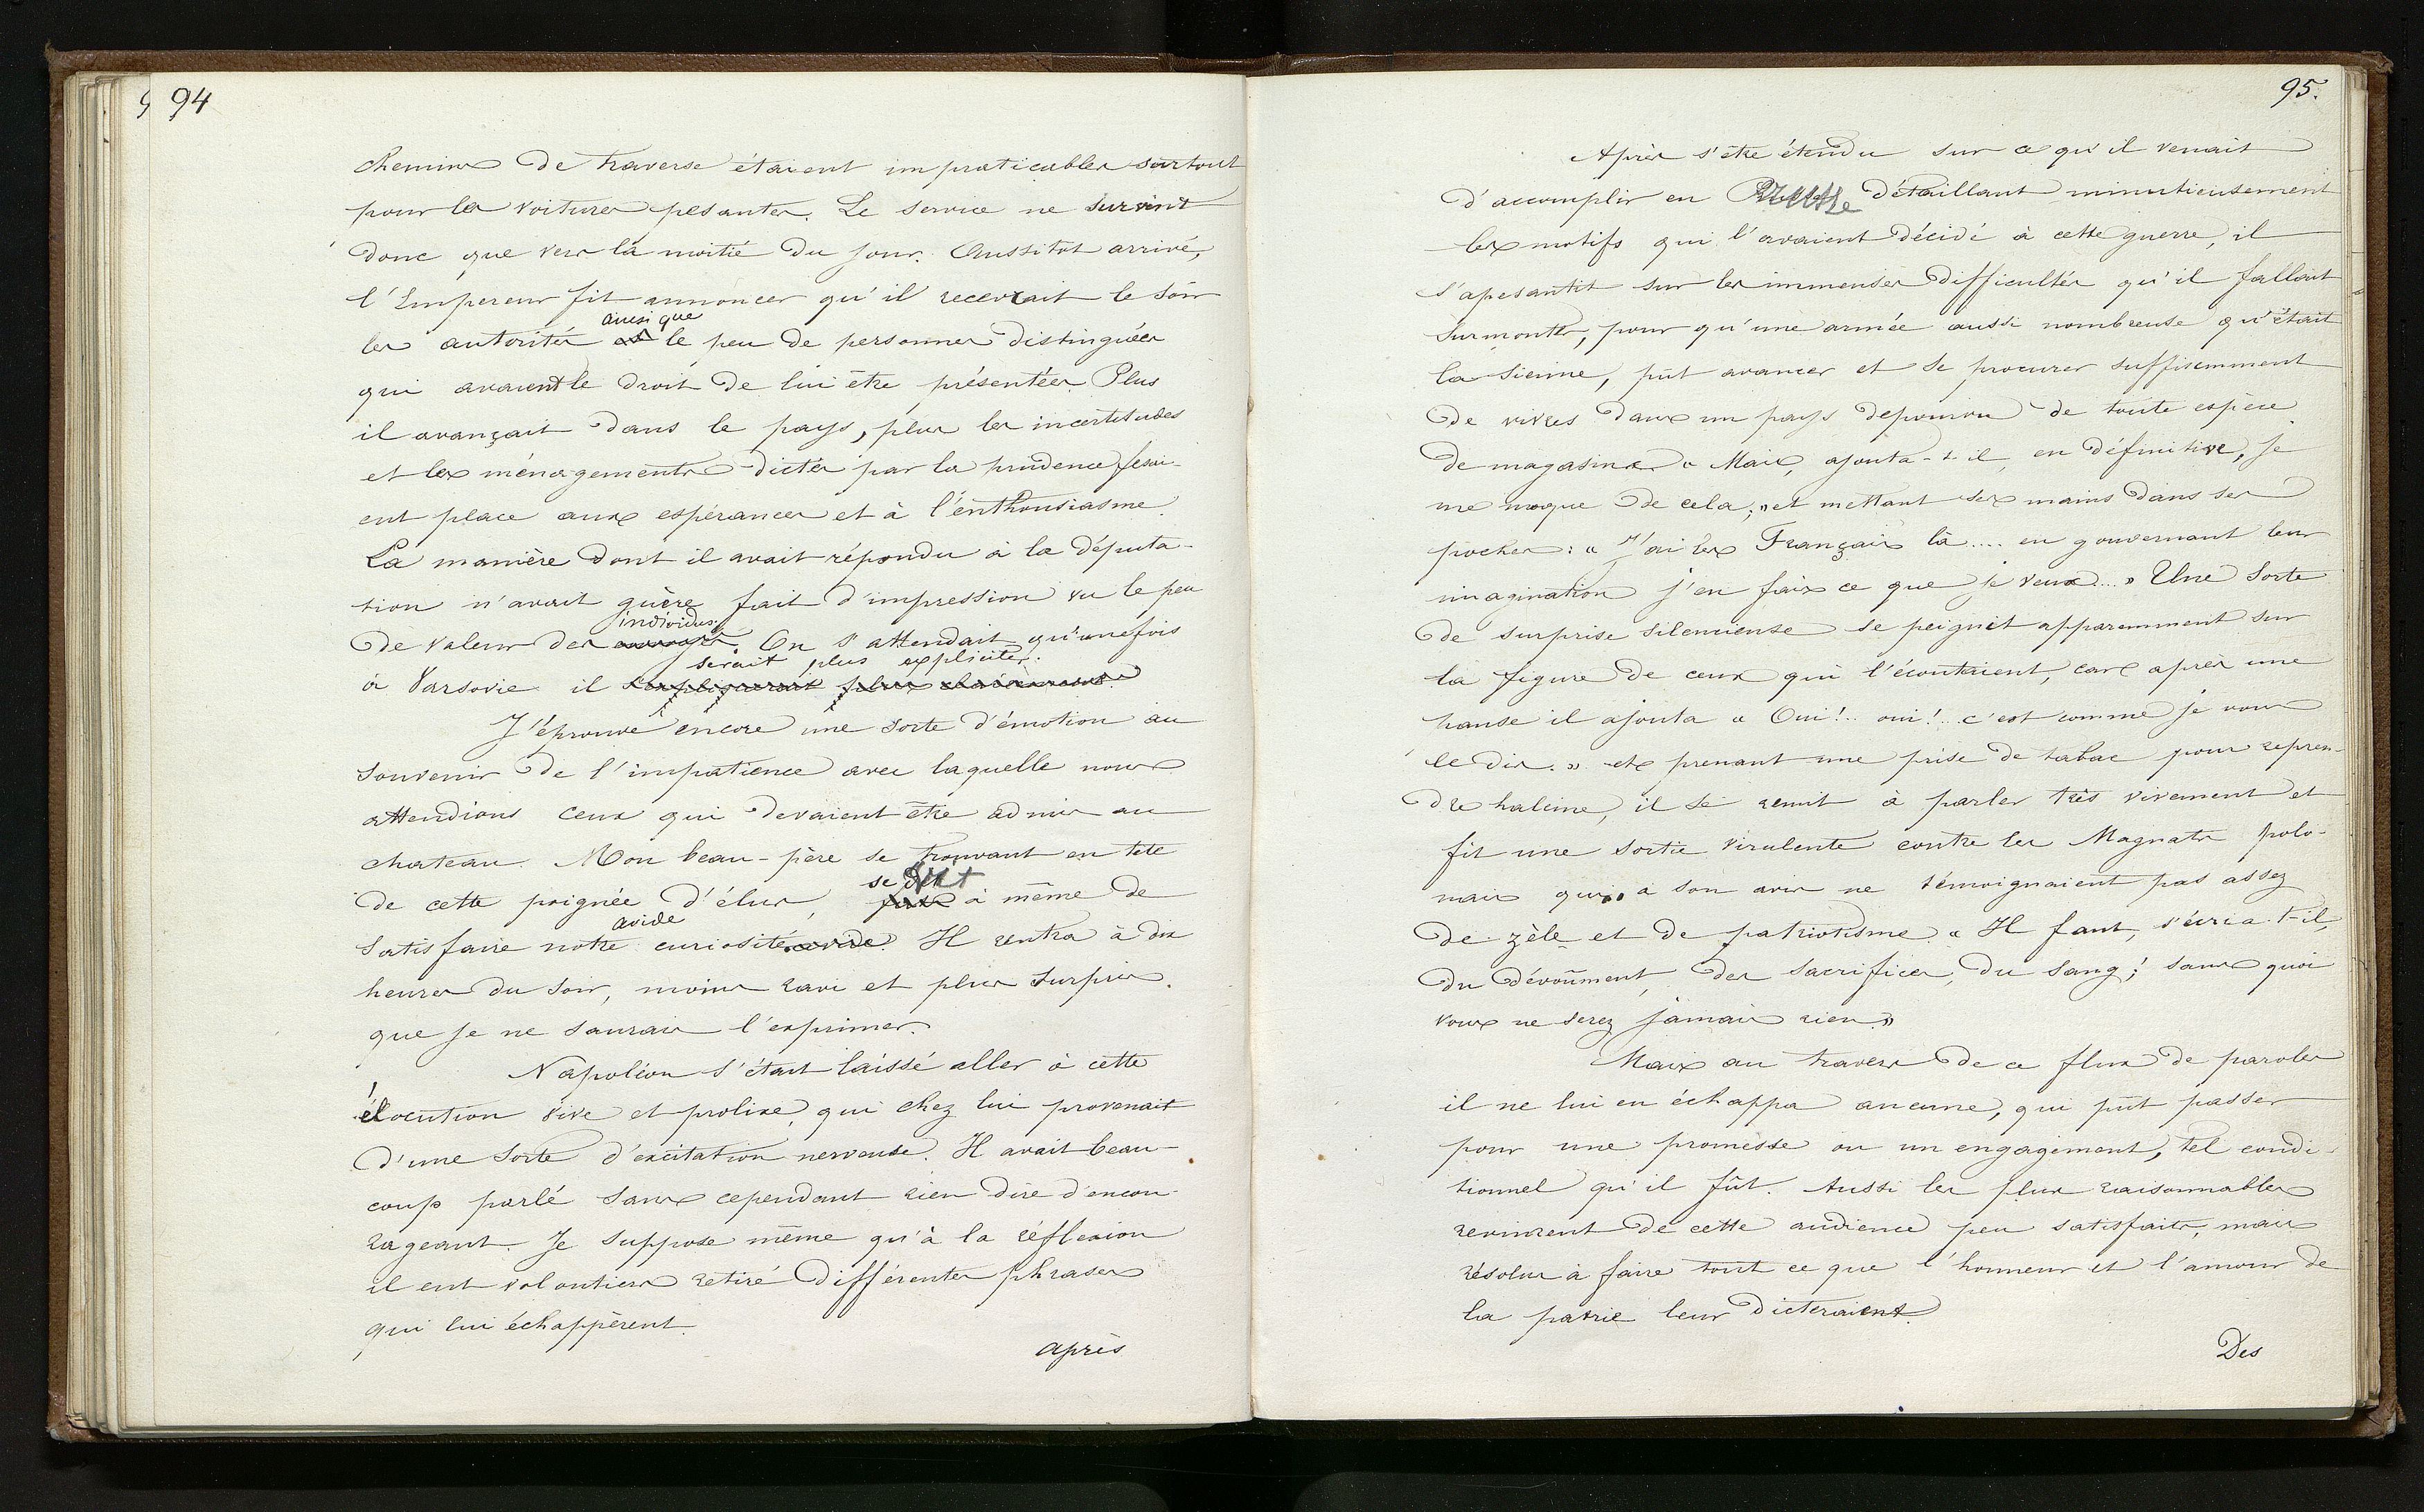 94
chemins de traverse étaient impraticables surtout
pour les voitures pesantes. Le service ne survint
donc que vers la moitié du jour. Aussitôt arrivé,
l'Empereur fit annoncer qu'il recevrait le soir
ainsi que
les autorités et le peu de personnes distinguées
qui avaient le droit de lui être présentées. Plus
il avançait dans le pays, plus les incertitudes
et les ménagements dictés par la prudence fesai-
ent place aux espérances et à l'enthousiasme.
La manière dont il avait répondu à la députa-
tion n'avait guère fait d'impression vu le peu
individus.
de valeur des envoyés. On s'attendait qu'une fois
serait plus explicite.
à Varsovie il s'expliquerait plus clairement.
J'éprouve encore une sorte d'émotion au
souvenir de l'impatience avec laquelle nous
attendions ceux qui devaient être admis au
chateau. Mon beau-père se trouvant en tête
se vit
de cette poignée d'élus, fut à même de
avide
satisfaire notre curiosité avide. Il rentra à dix
heures du soir, moins ravi et plus surpris.
que je ne saurais l'exprimer.
Napoléon s'était laissé aller à cette
élocution vive et prolixe, qui chez lui provenait
d'une sorte d'excitation nerveuse. Il avait beau-
coup parlé sans cependant rien dire d'encou-
rageant. Je suppose même qu'à la réflexion
il eut volontiers retiré différentes phrases
qui lui échappèrent.
après
95.
Après s'être étendu sur ce qu'il venait
d'accomplir en Prusse détaillant minutieusement
les motifs qui l'avaient décidé à cette guerre, il
s'apesantit sur les immenses difficultés qu'il fallait
surmonter, pour qu'une armée aussi nombreuse qu'était
la sienne, pût avancer et se procurer suffisemment
de vivres dans un pays depourvu de toute espèce
de magasins « Mais, ajouta-t-il, en définitive, je
me moque de cela; » et mettant ses mains dans ses
poches: « J'ai les Français là.... en gouvernant leur
imagination j'en fais ce que je veux... » Une sorte
de surprise silencieuse se peignit apparemment sur
la figure de ceux qui l'écoutaient, car après une
pause il ajouta « Oui!.. oui!.. c'est comme je vous
le dis. » et prenant une prise de tabac pour repren-
dre haleine, il se remit à parler très vivement et
fit une sortie virulente contre les Magnats polo-
nais qui, a son avis ne témoignaient pas assez
de zèle et de patriotisme. « Il faut, s'écria-t-il,
du dévoûment, des sacrifices, du sang; sans quoi
vous ne serez jamais rien. »
Mais au travers de ce flux de paroles
il ne lui en échappa aucune, qui pût passer
pour une promesse ou un engagement, tel condi-
tionnel qu'il fût. Aussi les plus raisonnables
revinrent de cette audience peu satisfaits, mais
résolus à faire tout ce que l'honneur et l'amour de
la patrie leur dicteraient.
Des